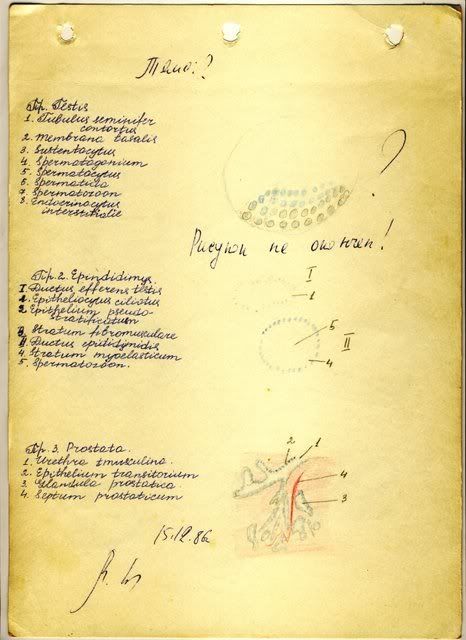 Тема:?
Пр. Testis
1. Tubulus seminifer
contortus
2. Membrana basalis
3. Sustentacytus
4. Spermatogonium
5. Spermatocytus
6. Spermatida
7. Spermatozoon
8. Endocrinocytus
interstitialie
?
Рисунок не окончен!
Пр. 2. Epindidimys
I Ductus efferens testis
1. Epitheliocytus ciliatus
2 Epithelium pseudo-
stratificatum
3. Stratum fibromusculare
II Ductus epididymidis
4. Stratum myoelasticum
5. Spermatozoon.
I
1
5
II
4
Пр. 3. Prostata.
1. Urethra musculina.
2. Epithelium transitorium
3 Glandula prostatica
4. Septum prostaticum
2
1
4
3
15.12.86г